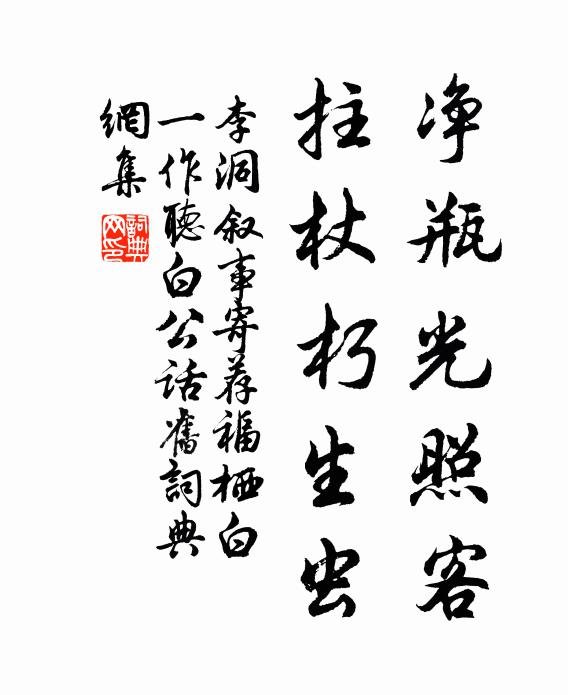 净瓶光照客
拄杖朽生虫
李洞叙事寄荐福栖白
一作聴白公话舊詞典
網集
詞典
网印